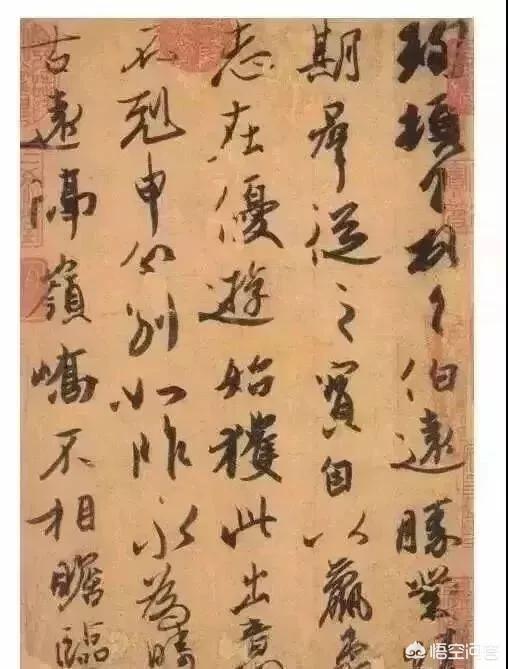 珣頓首頓首伯遠勝業情
期羣從之寶自以羸患
志在優遊始獲此出意
不剋申分別如昨永為疇
古遠隔嶺嶠不相瞻臨
悟空问答